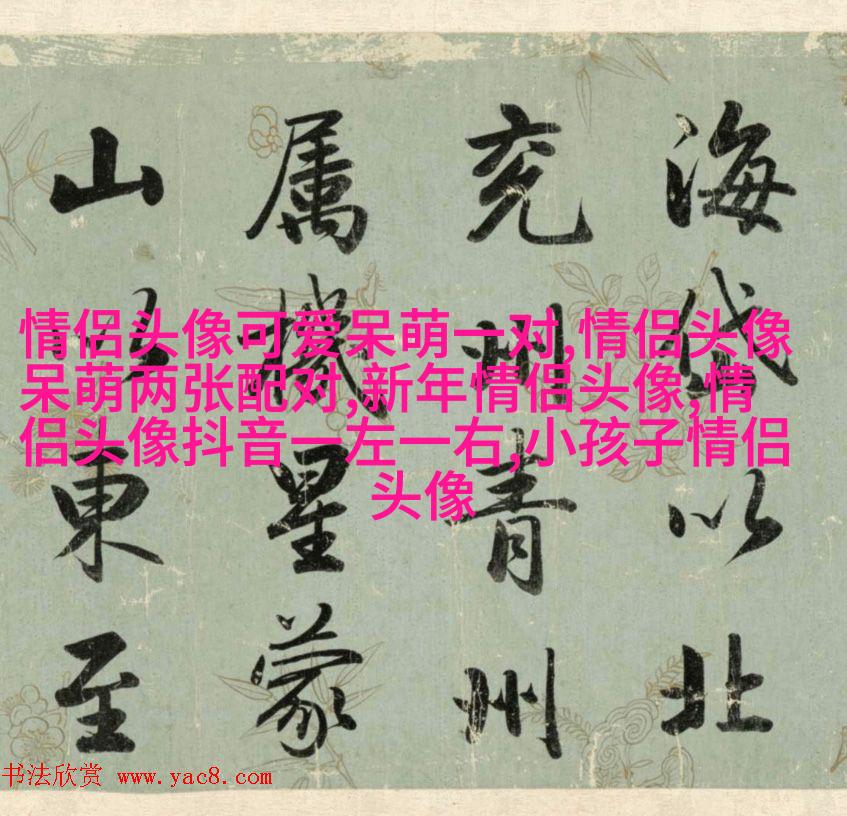 海岱以北
兖洲青州
属機星蒙
山以東至
情侣头像可爱呆萌一对,情侣头像
呆萌两张配对,新年情侣头像,情
侣头像抖音一左一右,小孩子情侣
头像
书法欣赏 www.yac8.com